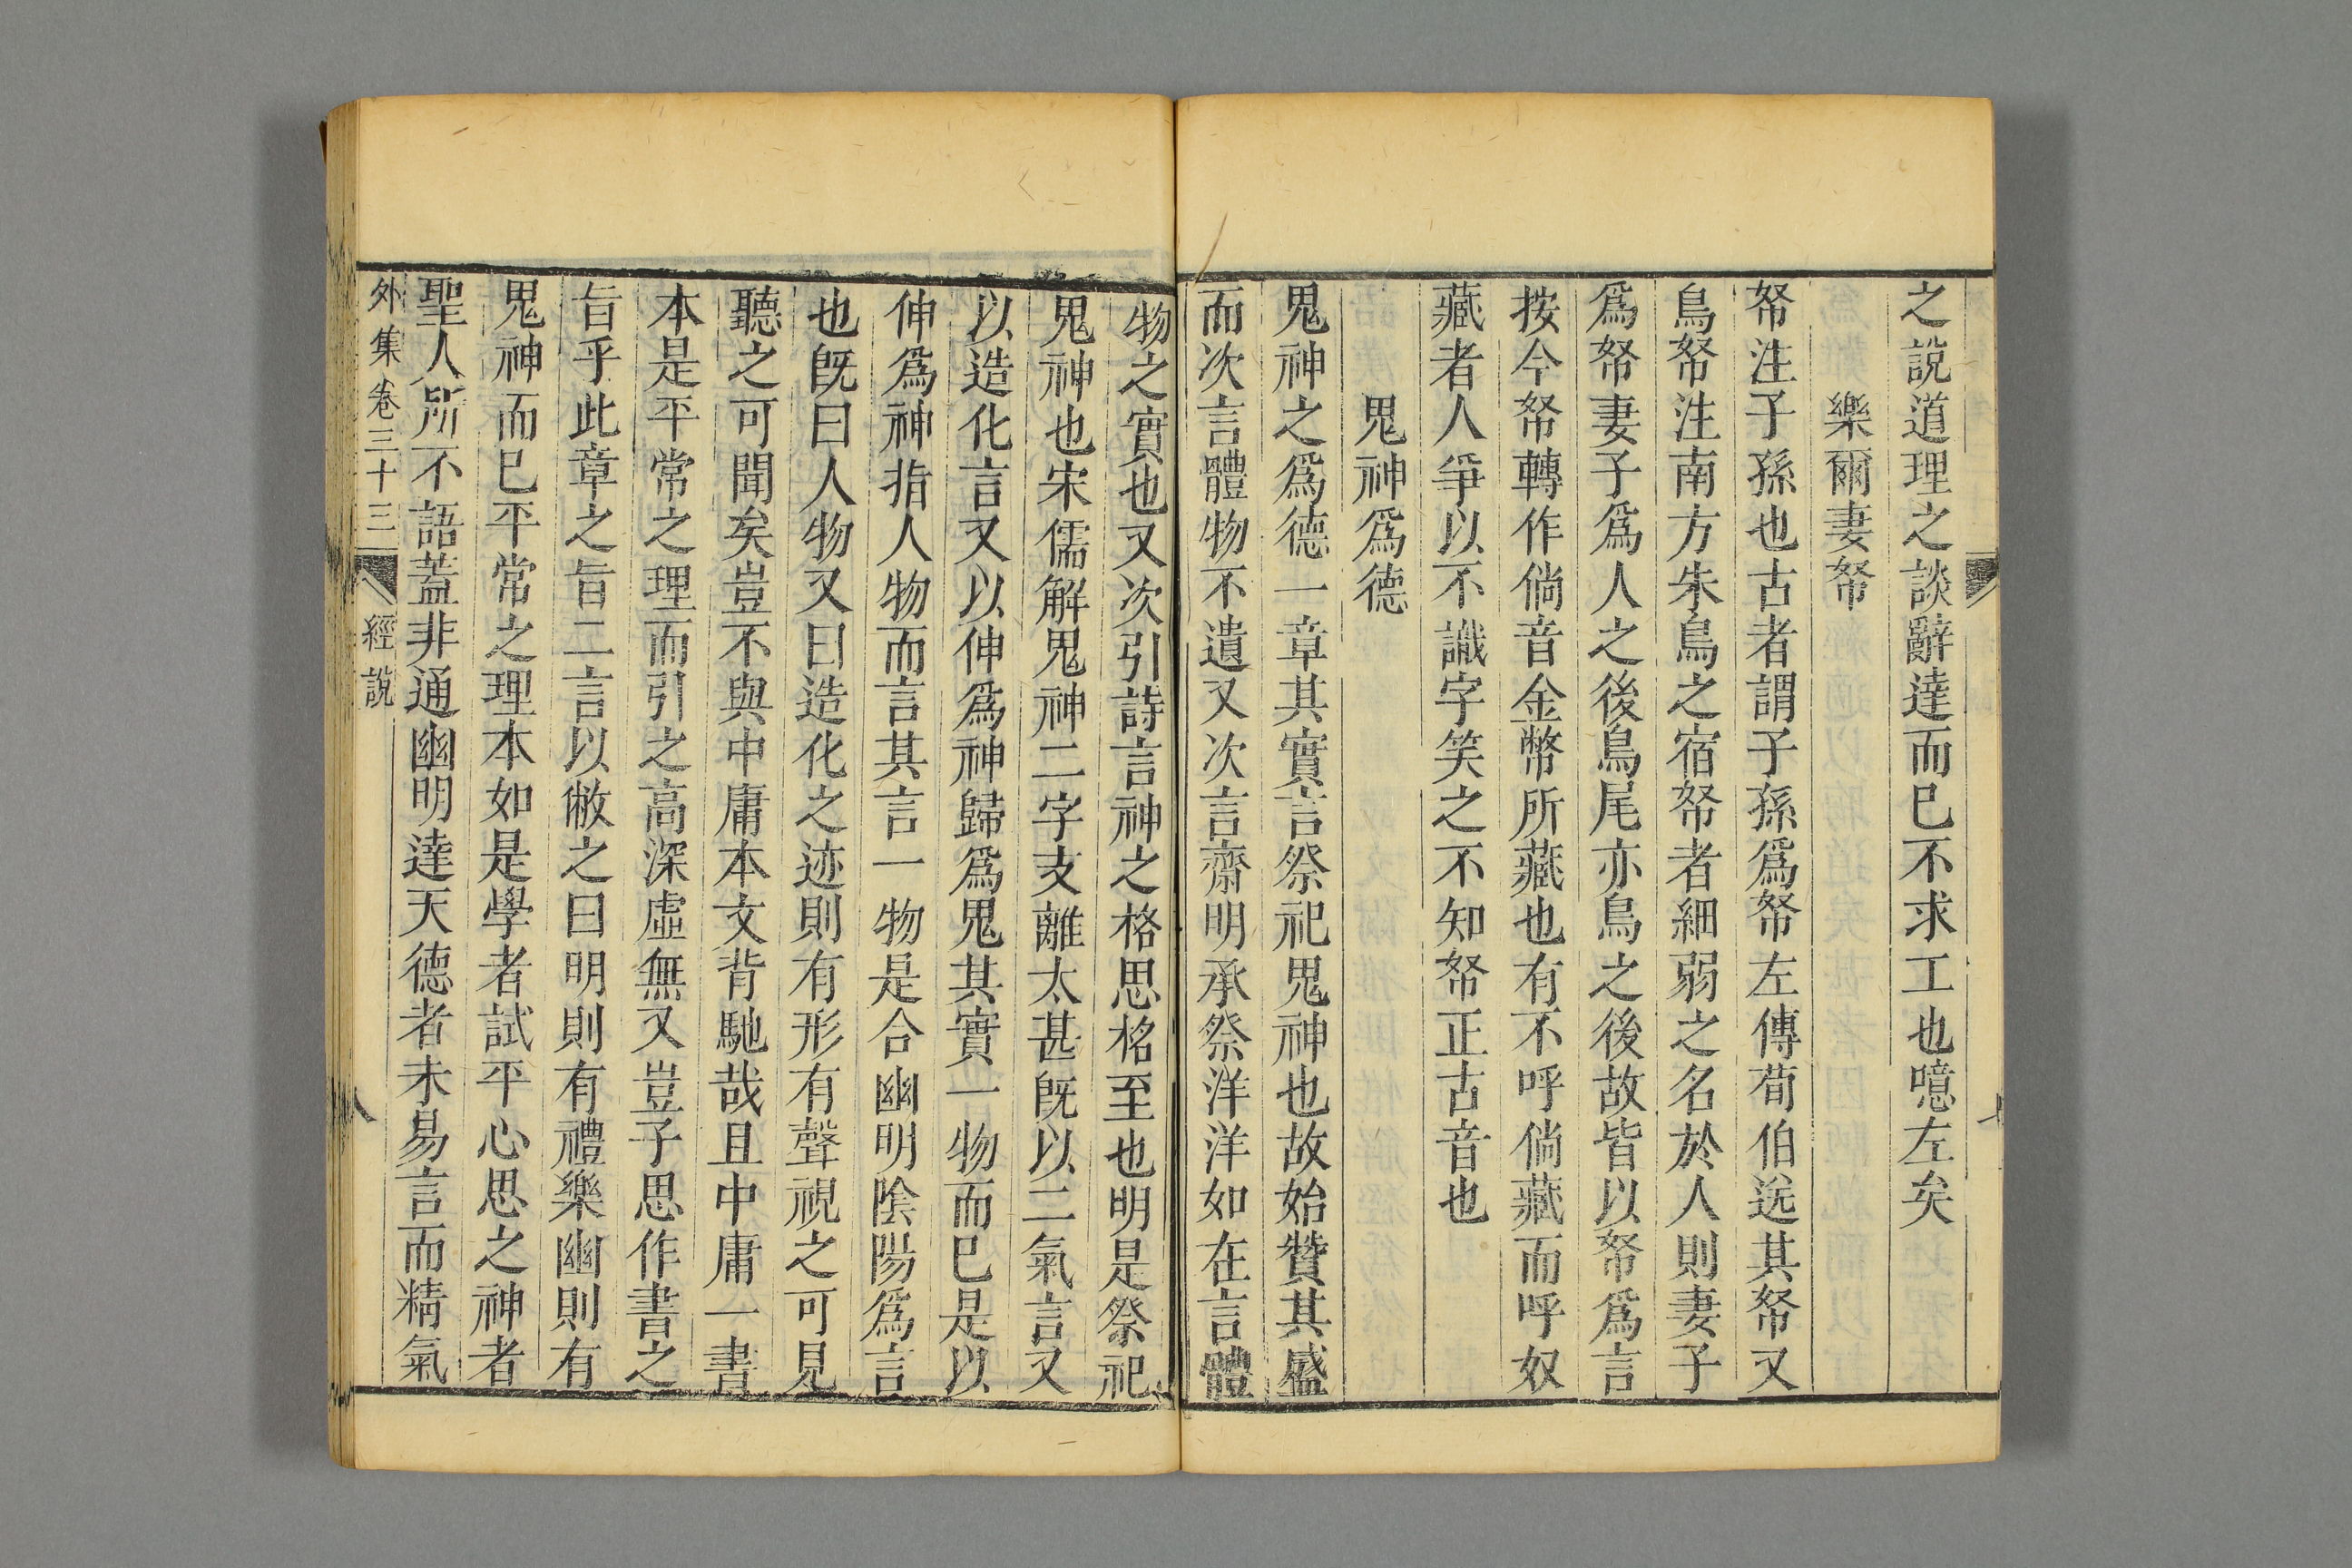 之說道理之談辭達而已不求工也噫左矣
樂爾妻帑
帑注子孫也古者謂子孫爲帑左傳荀伯送其帑又
鳥帑注南方朱鳥之宿帑者細弱之名於人則妻子
爲帑妻子爲人之後鳥尾亦鳥之後故皆以帑爲言
按今帑轉作倘音金幣所藏也有不呼倘藏而呼奴
藏者人爭以不識字笑之不知帑正古音也
鬼神爲德
鬼神之爲德一章其實言祭祀鬼神也故始贊其盛
而次言體物不遺又次言齋明承祭洋洋如在言體
物之實也又次引詩言神之格思格至也明是祭祀
鬼神也宋儒解鬼神二字支離太甚旣以二氣言又
以造化言又以伸爲神歸爲鬼其實一物而已是以
伸爲神指人物而言其言一物是合幽明陰陽爲言
也旣曰人物又曰造化之迹則有形有聲視之可見
聽之可聞矣豈不與中庸本文背馳哉且中庸一書
本是平常之理而引之高深虛無又豈子思作書之
旨乎此章之旨二言以敝之曰明則有禮樂幽則有
鬼神而已平常之理本如是學者試平心思之神者
聖人所不語蓋非通幽明達天德者未易言而精氣
外集卷三十三 經說 八